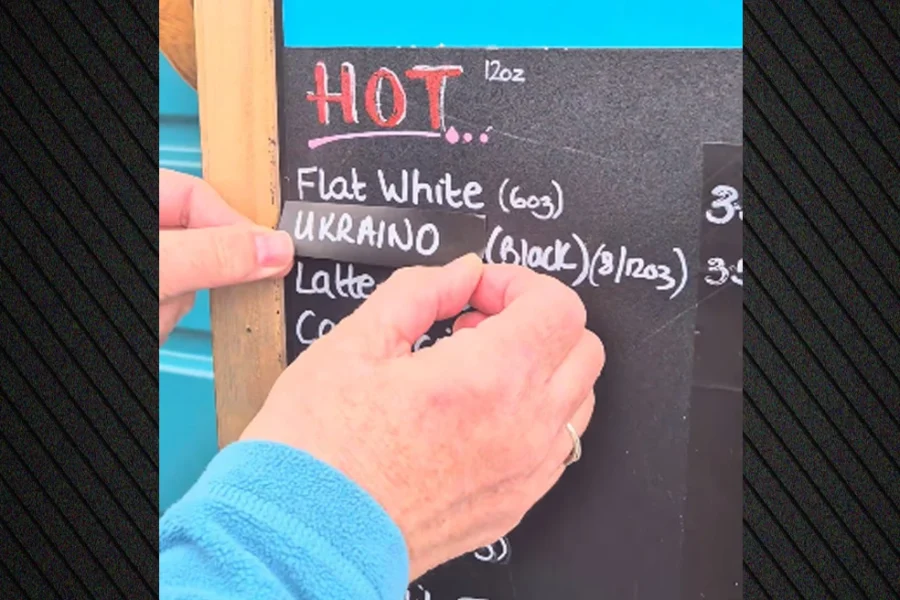 HOT... 12oz
Flat White (6oz) 3.
UKRAINO (Black) (8/12oz) 3.5
Latte